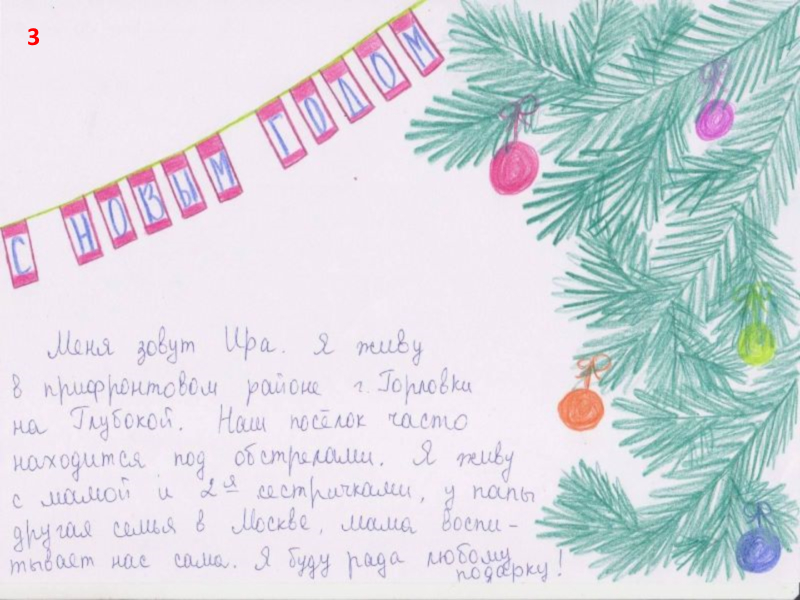 3
С НОВЫМ ГОДОМ
Меня зовут Ира. Я живу
в прифронтовом районе г. Горловки
на Глубокой. Наш посёлок часто
находится под обстрелами. Я живу
с мамой и 2я сестричками, у папы
другая семья в Москве, мама воспи-
тывает нас сама. Я буду рада любому
подарку!